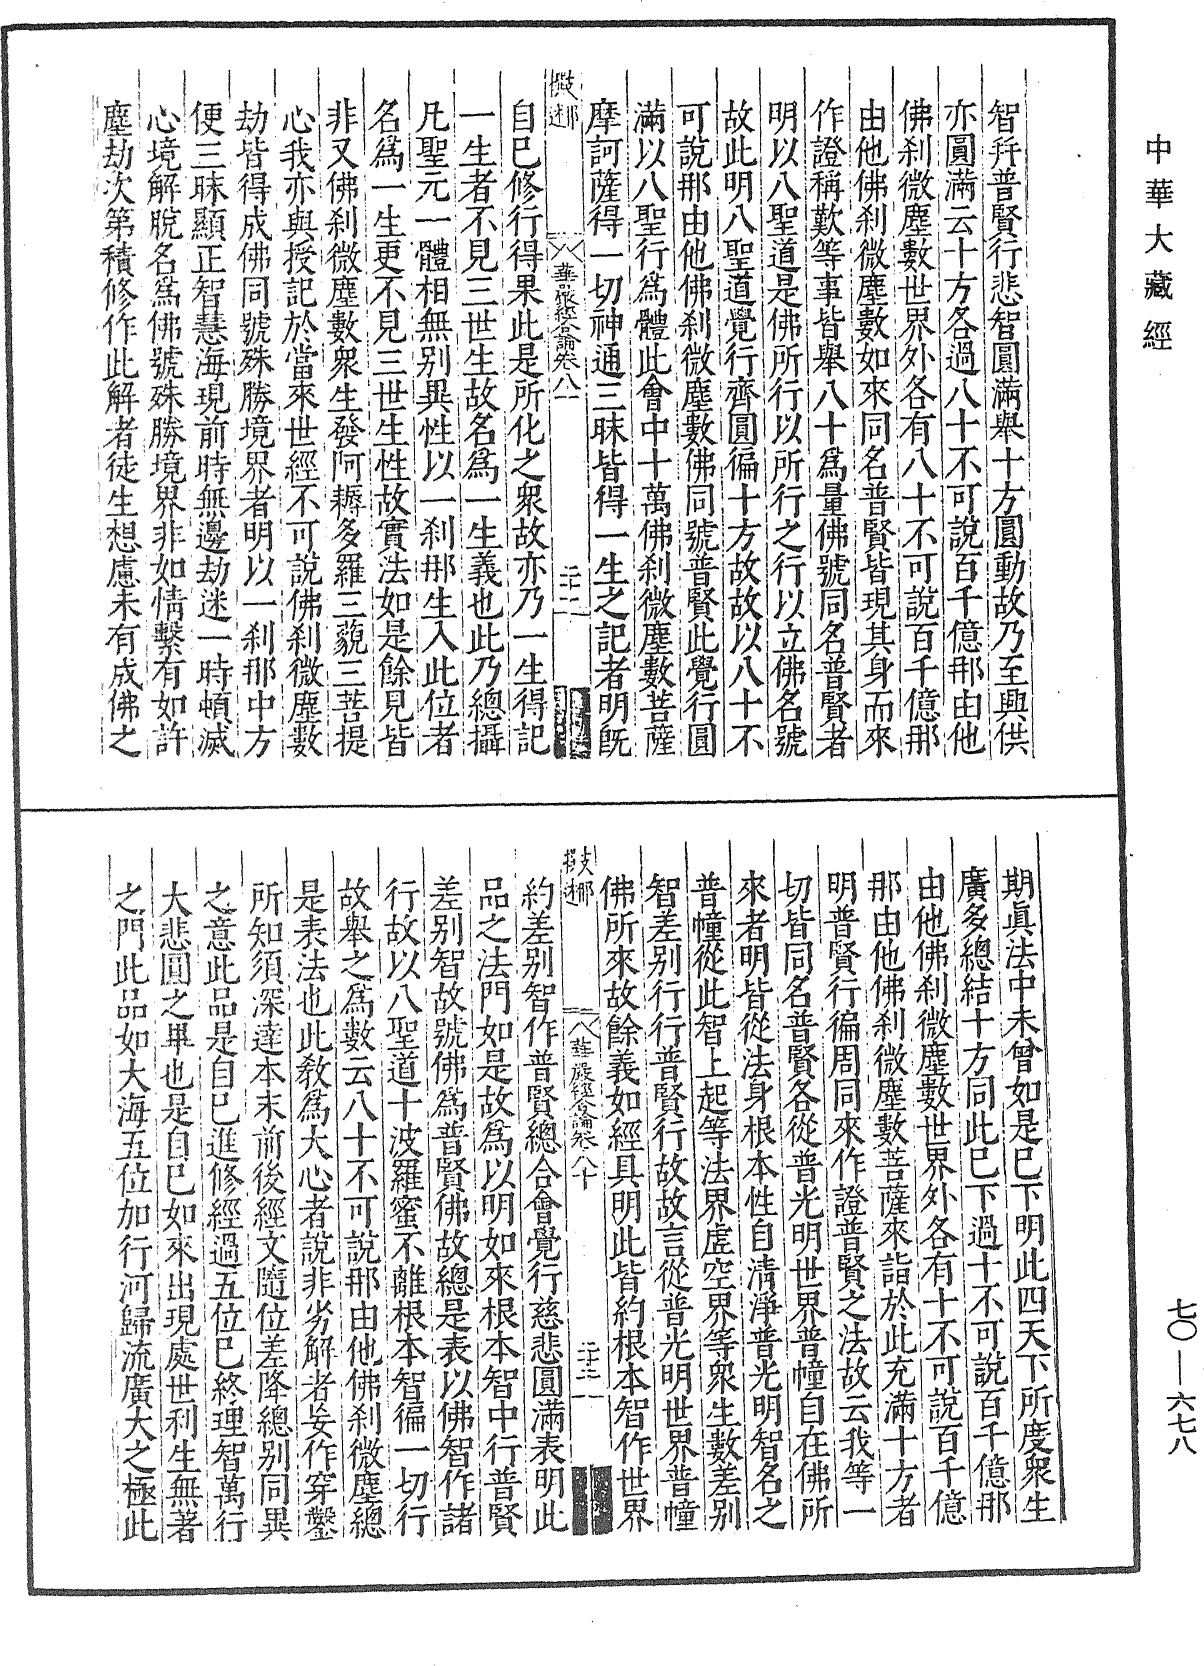 中華大藏經
智幷普賢行悲智圓滿舉十方圓動故乃至興供
亦圓滿云十方各過八十不可說百千億那由他
佛刹微塵數世界外各有八十不可說百千億那
由他佛刹微塵數如來同名普賢皆現其身而來
作證稱歎等事皆舉八十為量佛號同名普賢者
明以八聖道是佛所行以所行之行以立佛名號
故此明八聖道覺行齊圓徧十方故故以八十不
可說那由他佛刹微塵數佛同號普賢此覺行圓
滿以八聖行為體此會中十萬佛刹微塵數菩薩
摩訶薩得一切神通三昧皆得一生之記者明旣
華嚴經合論卷八十
自巳修行得果此是所化之衆故亦乃一生得記
一生者不見三世生故名為一生義也此乃總攝
凡聖元一體相無别異性以一刹那生入此位者
名為一生更不見三世生性故實法如是餘見皆
非又佛刹微塵數衆生發阿耨多羅三藐三菩提
心我亦與授記於當來世經不可說佛刹微塵數
劫皆得成佛同號殊勝境界者明以一刹那中方
便三昧顯正智慧海現前時無邊劫迷一時頓滅
心境解脫名為佛號殊勝境界非如情繫有如許
塵劫次第積修作此解者徒生想慮未有成佛之
期眞法中未曾如是巳下明此四天下所度衆生
廣多總結十方同此巳下過十不可說百千億那
由他佛刹微塵數世界外各有十不可說百千億
那由他佛刹微塵數菩薩來詣於此充滿十方者
明普賢行徧周同來作證普賢之法故云我等一
切皆同名普賢各從普光明世界普幢自在佛所
來者明皆從法身根本性自清淨普光明智名之
普幢從此智上起等法界虛空界等衆生數差别
智差别行行普賢行故故言從普光明世界普幢
佛所來故餘義如經具明此皆約根本智作世界
華嚴經合論卷八十
約差别智作普賢總合會覺行慈悲圓滿表明此
品之法門如是故為以明如來根本智中行普賢
差别智故號佛為普賢佛故總是表以佛智作諸
行故以八聖道十波羅蜜不離根本智徧一切行
故舉之為數云八十不可說那由他佛刹微塵總
是表法也此教為大心者說非劣解者妄作穿鑿
所知須深達本末前後經文隨位差降總别同異
之意此品是自巳進修經過五位巳終理智萬行
大悲圓之畢也是自巳如來出現處世利生無著
之門此品如大海五位加行河歸流廣大之極此
七〇—六七八